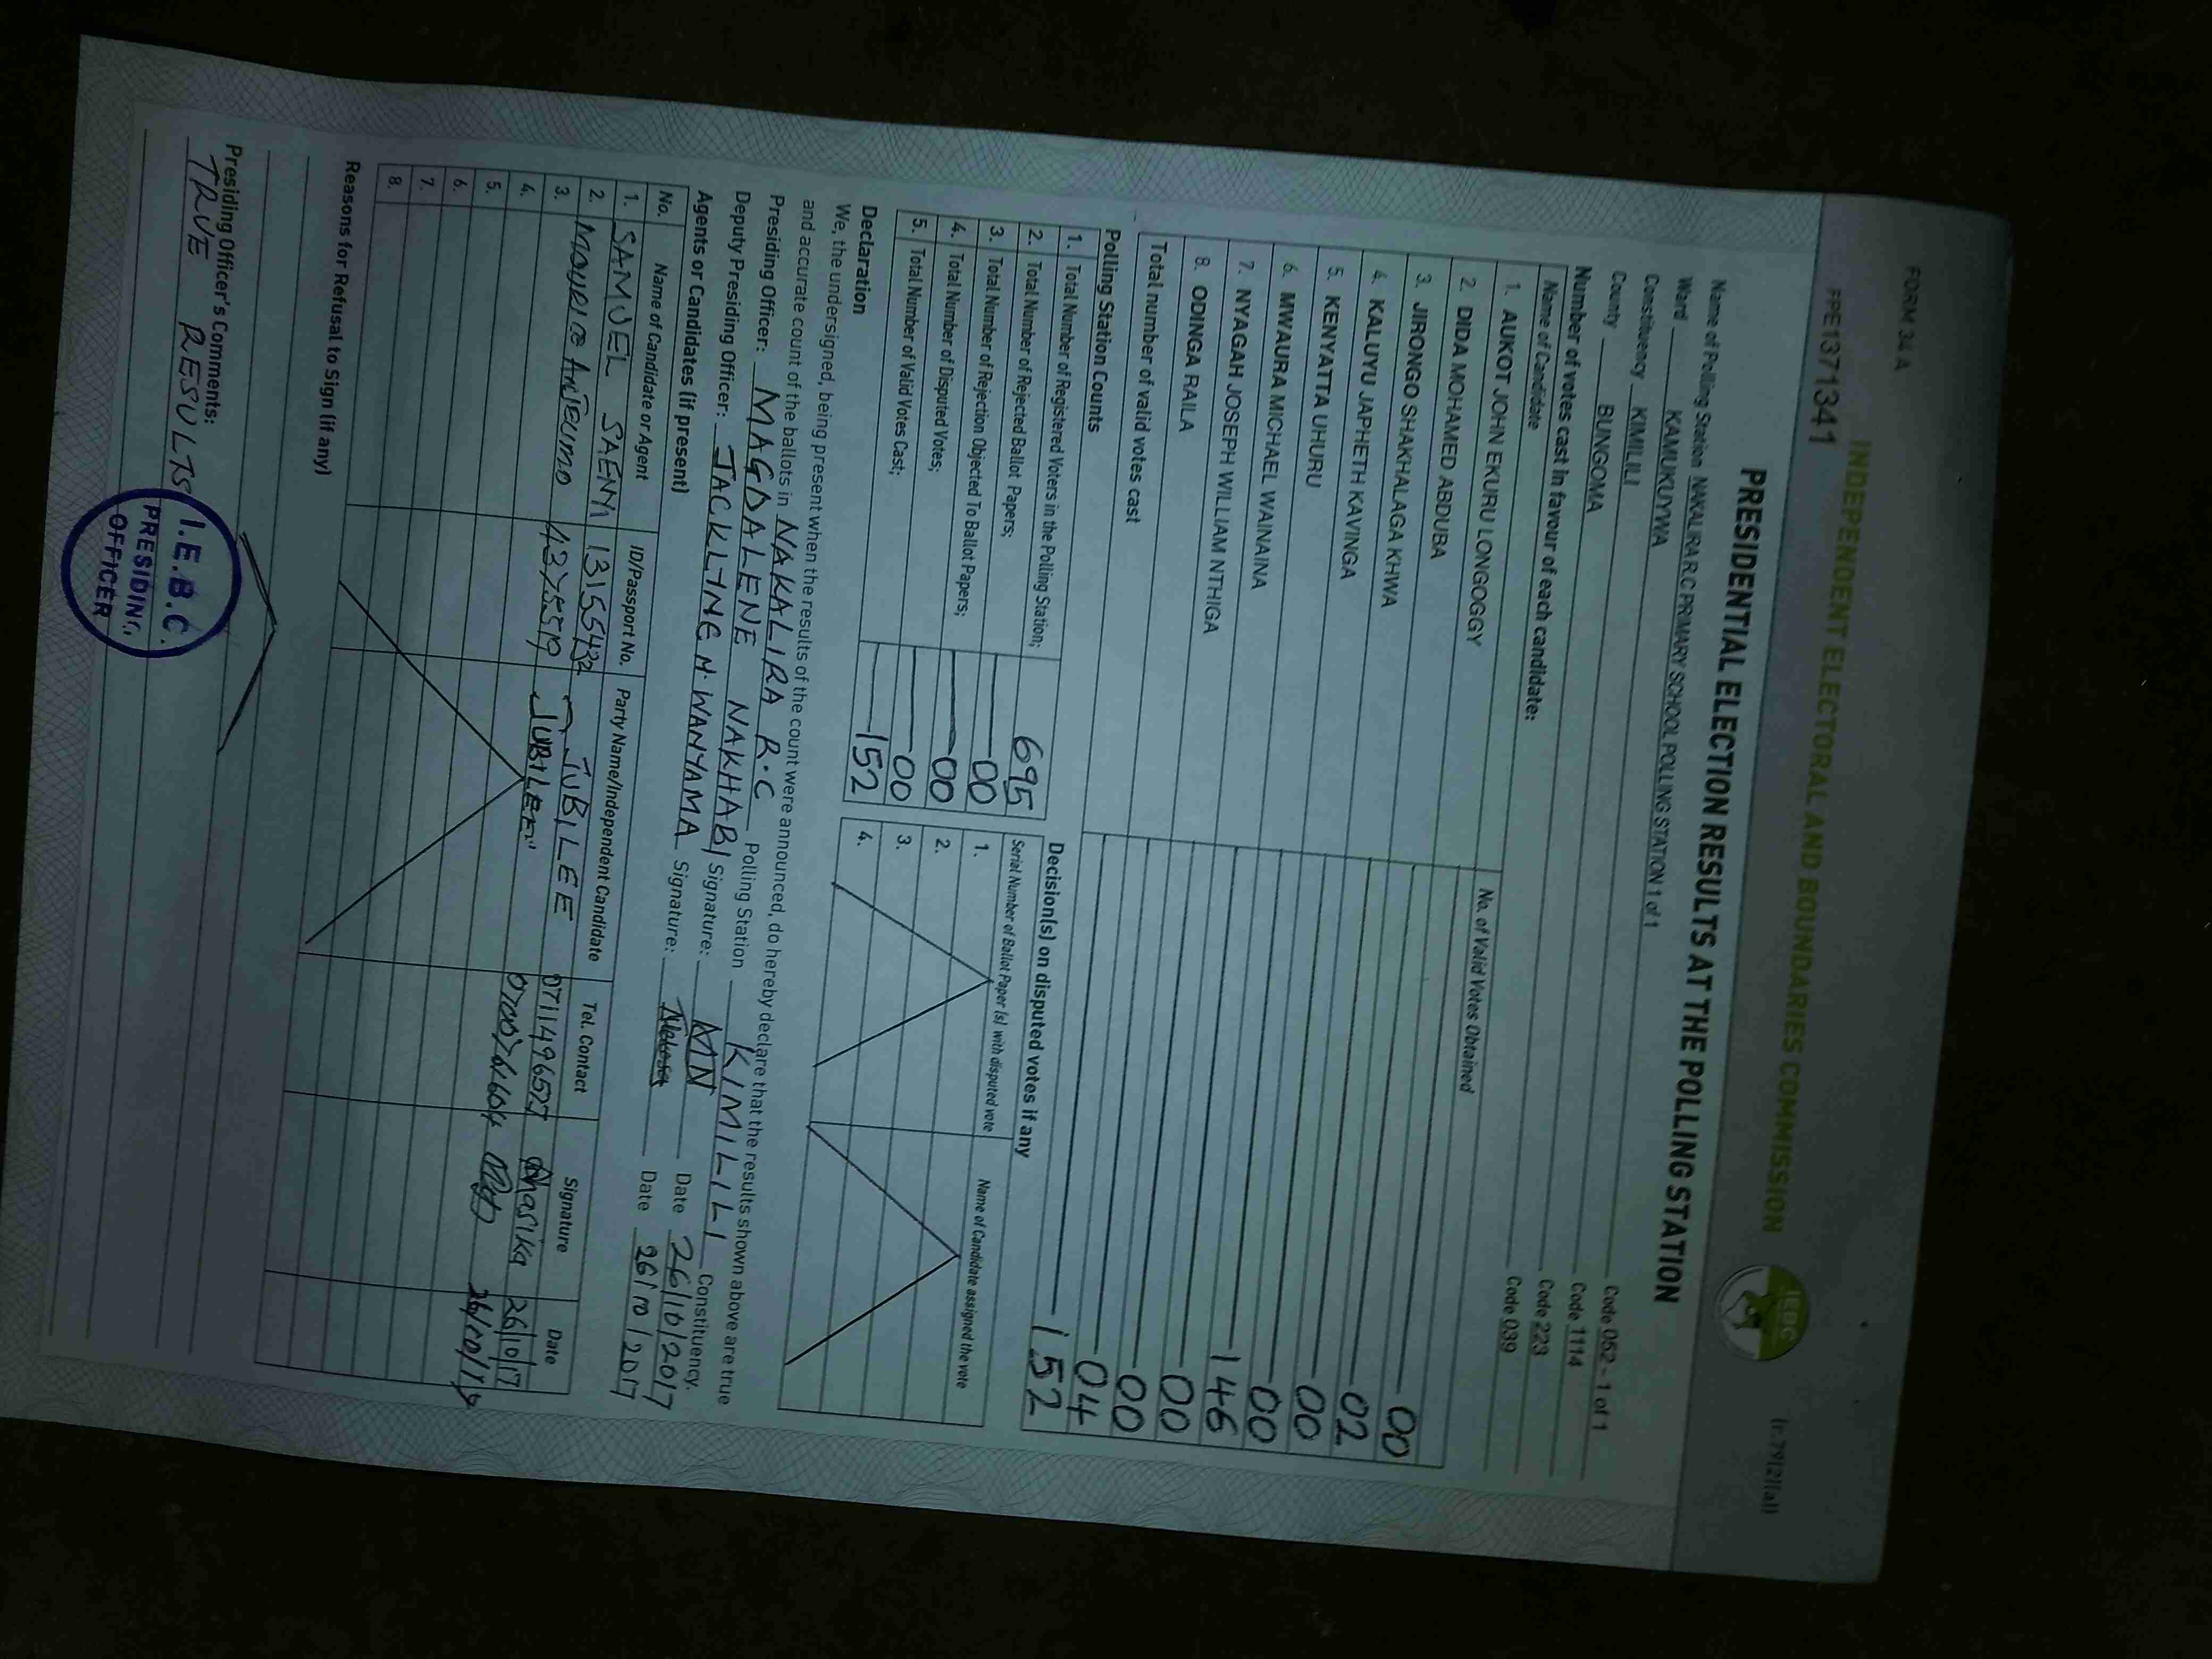 FORM 34 A
(r.79(2)(a))
FPE1371341
INDEPENDENT ELECTORAL AND BOUNDARIES COMMISSION
IEBC
PRESIDENTIAL ELECTION RESULTS AT THE POLLING STATION
Name of Polling Station NAKALIRA R.C PRIMARY SCHOOL POLLING STATION 1 of 1 Code 052 - 1 of 1
Ward KAMUKUYWA Code 1114
Constituency KIMILILI Code 223
County BUNGOMA Code 039
Number of votes cast in favour of each candidate:
Name of Candidate No. of Valid Votes Obtained
1. AUKOT JOHN EKURU LONGOGGY 00
2. DIDA MOHAMED ABDUBA 02
3. JIRONGO SHAKHALAGA KHWA 00
4. KALUYU JAPHETH KAVINGA 00
5. KENYATTA UHURU 146
6. MWAURA MICHAEL WAINAINA 00
7. NYAGAH JOSEPH WILLIAM NTHIGA 00
8. ODINGA RAILA 04
Total number of valid votes cast 152
Polling Station Counts
1. Total Number of Registered Voters in the Polling Station; 695
2. Total Number of Rejected Ballot Papers; 00
3. Total Number of Rejection Objected To Ballot Papers; 00
4. Total Number of Disputed Votes; 00
5. Total Number of Valid Votes Cast; 152
Decision(s) on disputed votes if any
Serial Number of Ballot Paper (s) with disputed vote Name of Candidate assigned the vote
1.
2.
3.
4.
Declaration
We, the undersigned, being present when the results of the count were announced, do hereby declare that the results shown above are true
and accurate count of the ballots in NAKALIRA R.C Polling Station KIMILILI Constituency.
Presiding Officer: MAGDALENE NAKHABI Signature: MN Date 26/10/2017
Deputy Presiding Officer: JACKLYNE N. WANYAMA Signature: Date 26/10/2017
Agents or Candidates (if present)
No. Name of Candidate or Agent ID/Passport No. Party Name/Independent Candidate Tel. Contact Signature Date
1. SAMUEL 13155432 JUBILEE 26/10/17
2. JUBILEE
3.
4.
5.
6.
7.
8.
Reasons for Refusal to Sign (if any)
Presiding Officer's Comments:
TRUE RESULTS
I.E.B.C.
PRESIDING
OFFICER